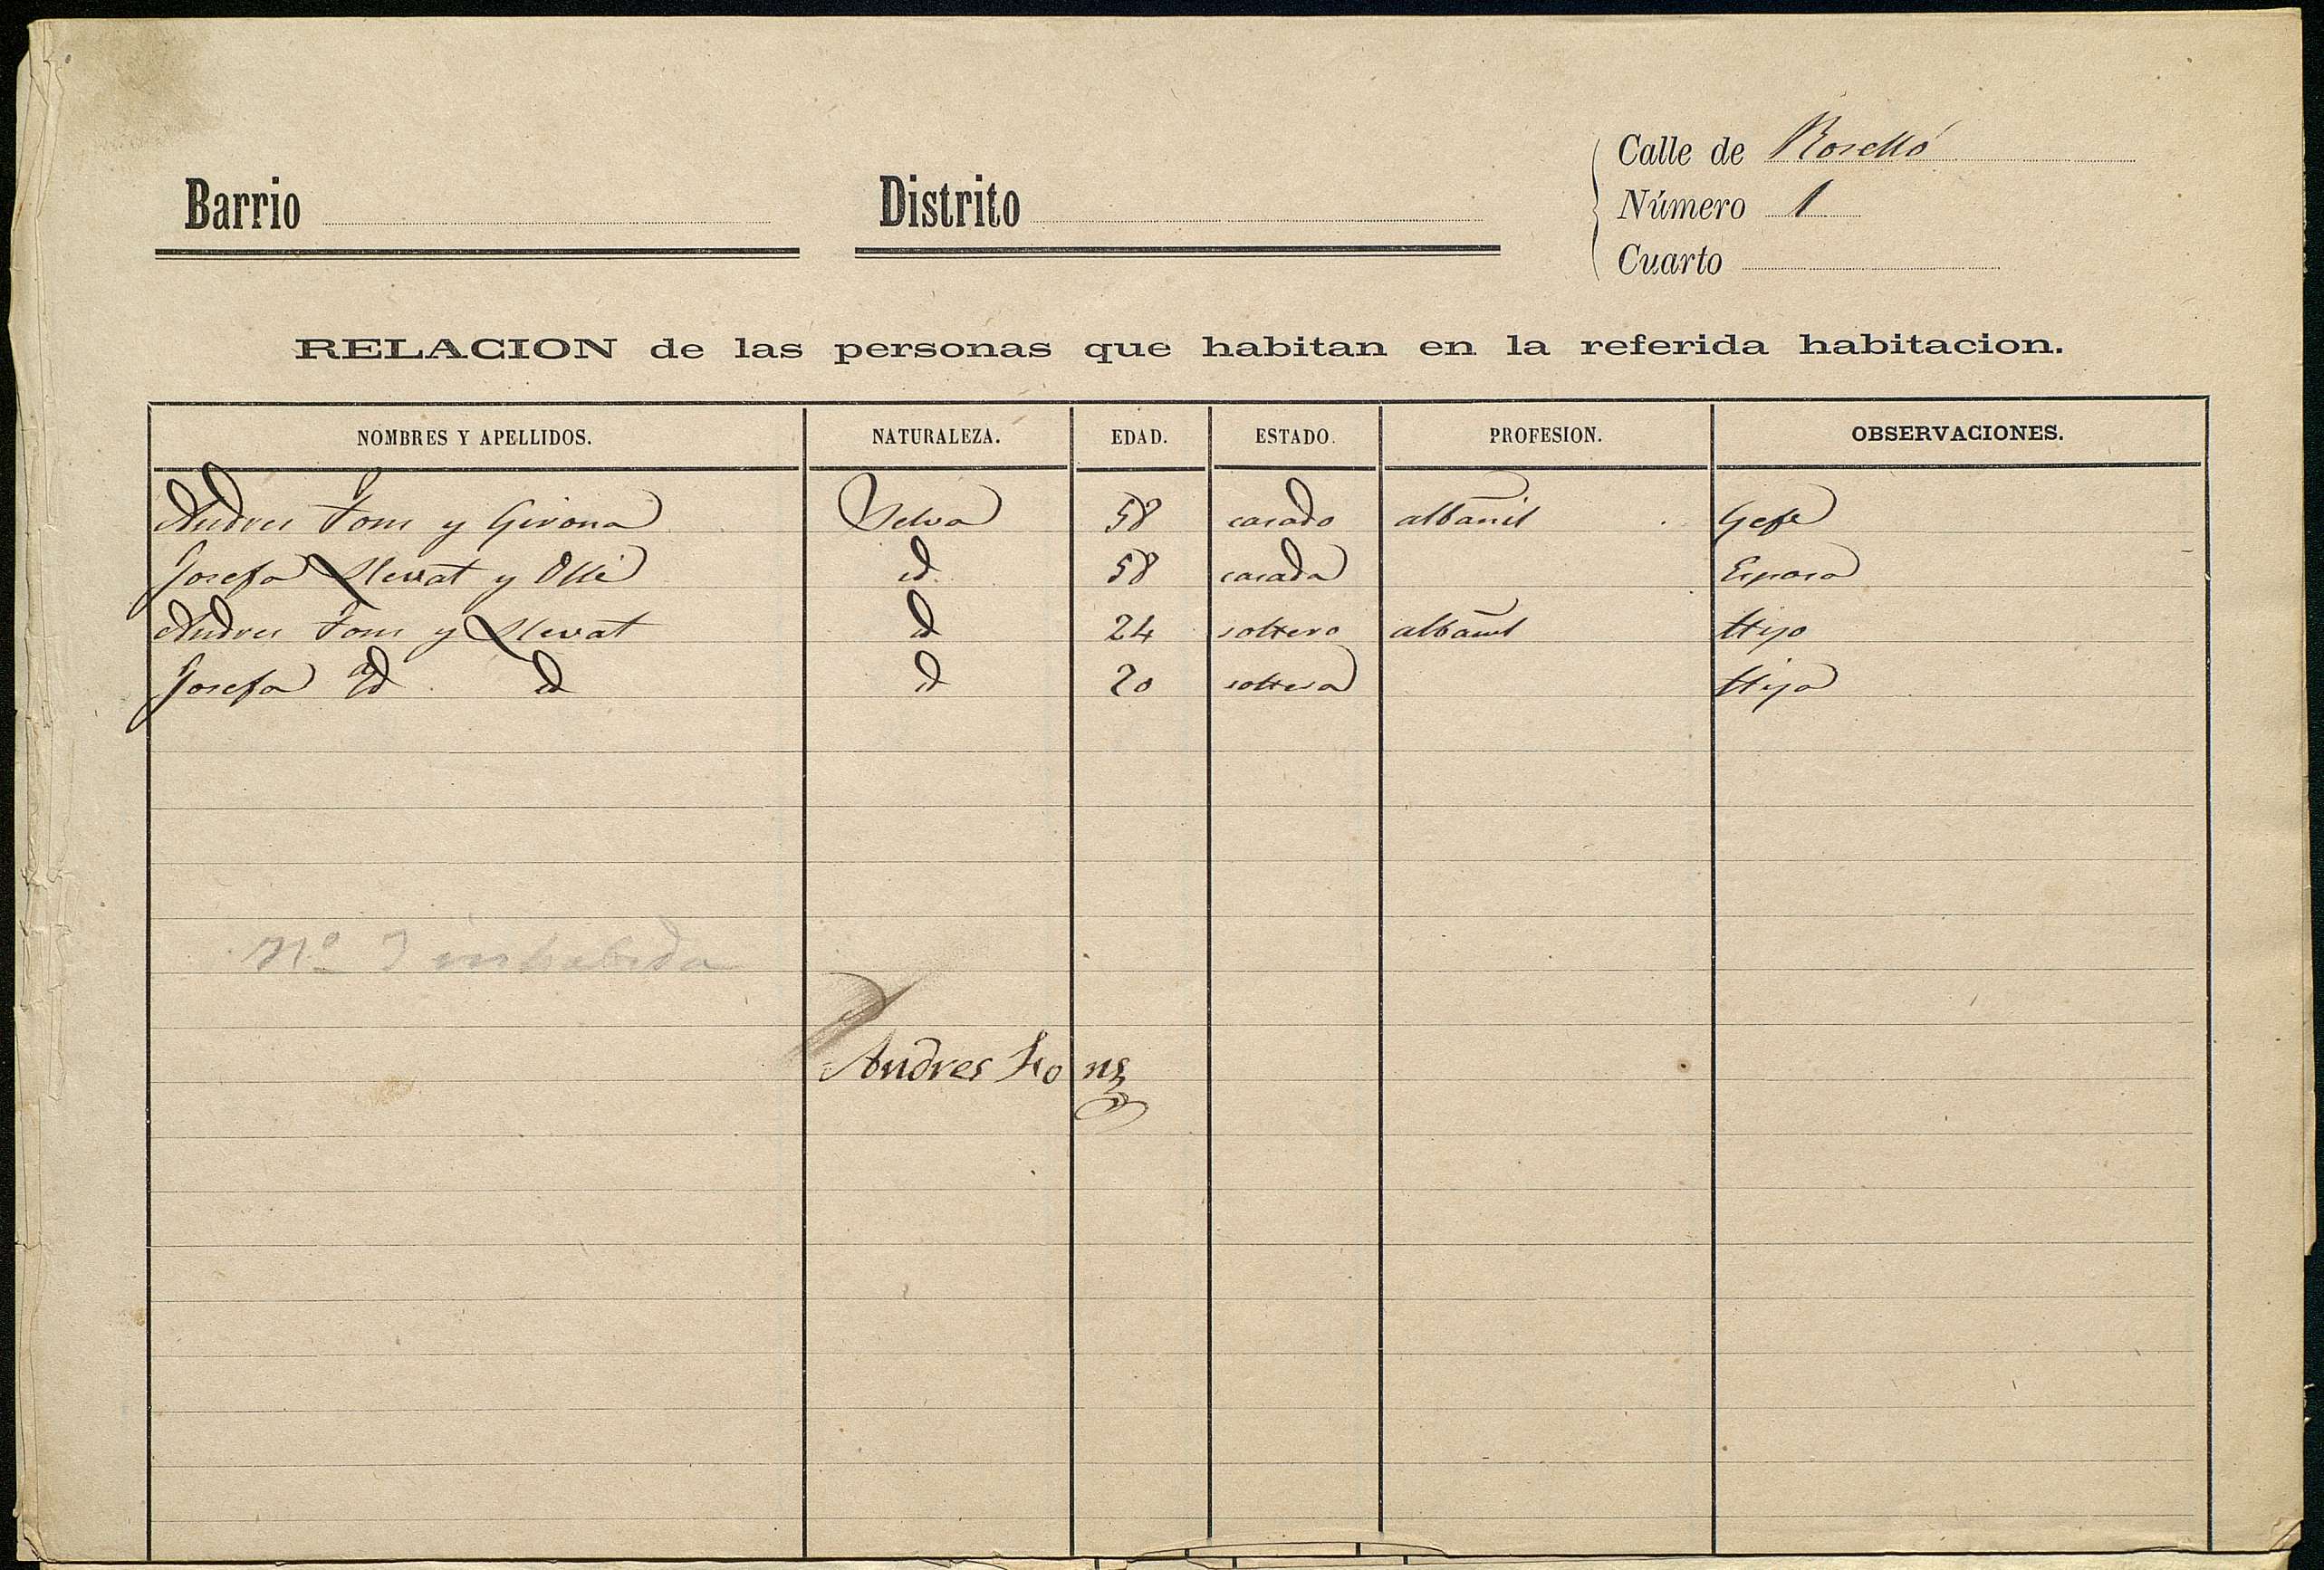 Calle de Roselló
Barrio Distrito Número 1
Cuarto
RELACION de las personas que habitan en la referida habitacion.
NOMBRES Y APELLIDOS. NATURALEZA. EDAD. ESTADO. PROFESION. OBSERVACIONES.
Andres Fons y Girona Selva 58 casado albañil Gefe
Josefa Llevat y Ollé id. 58 casada Esposa
Andres Fons y Llevat id 24 soltero albañil Hijo
Josefa id id id 20 soltera Hija
Nº 3 inhabida
Andres Fons